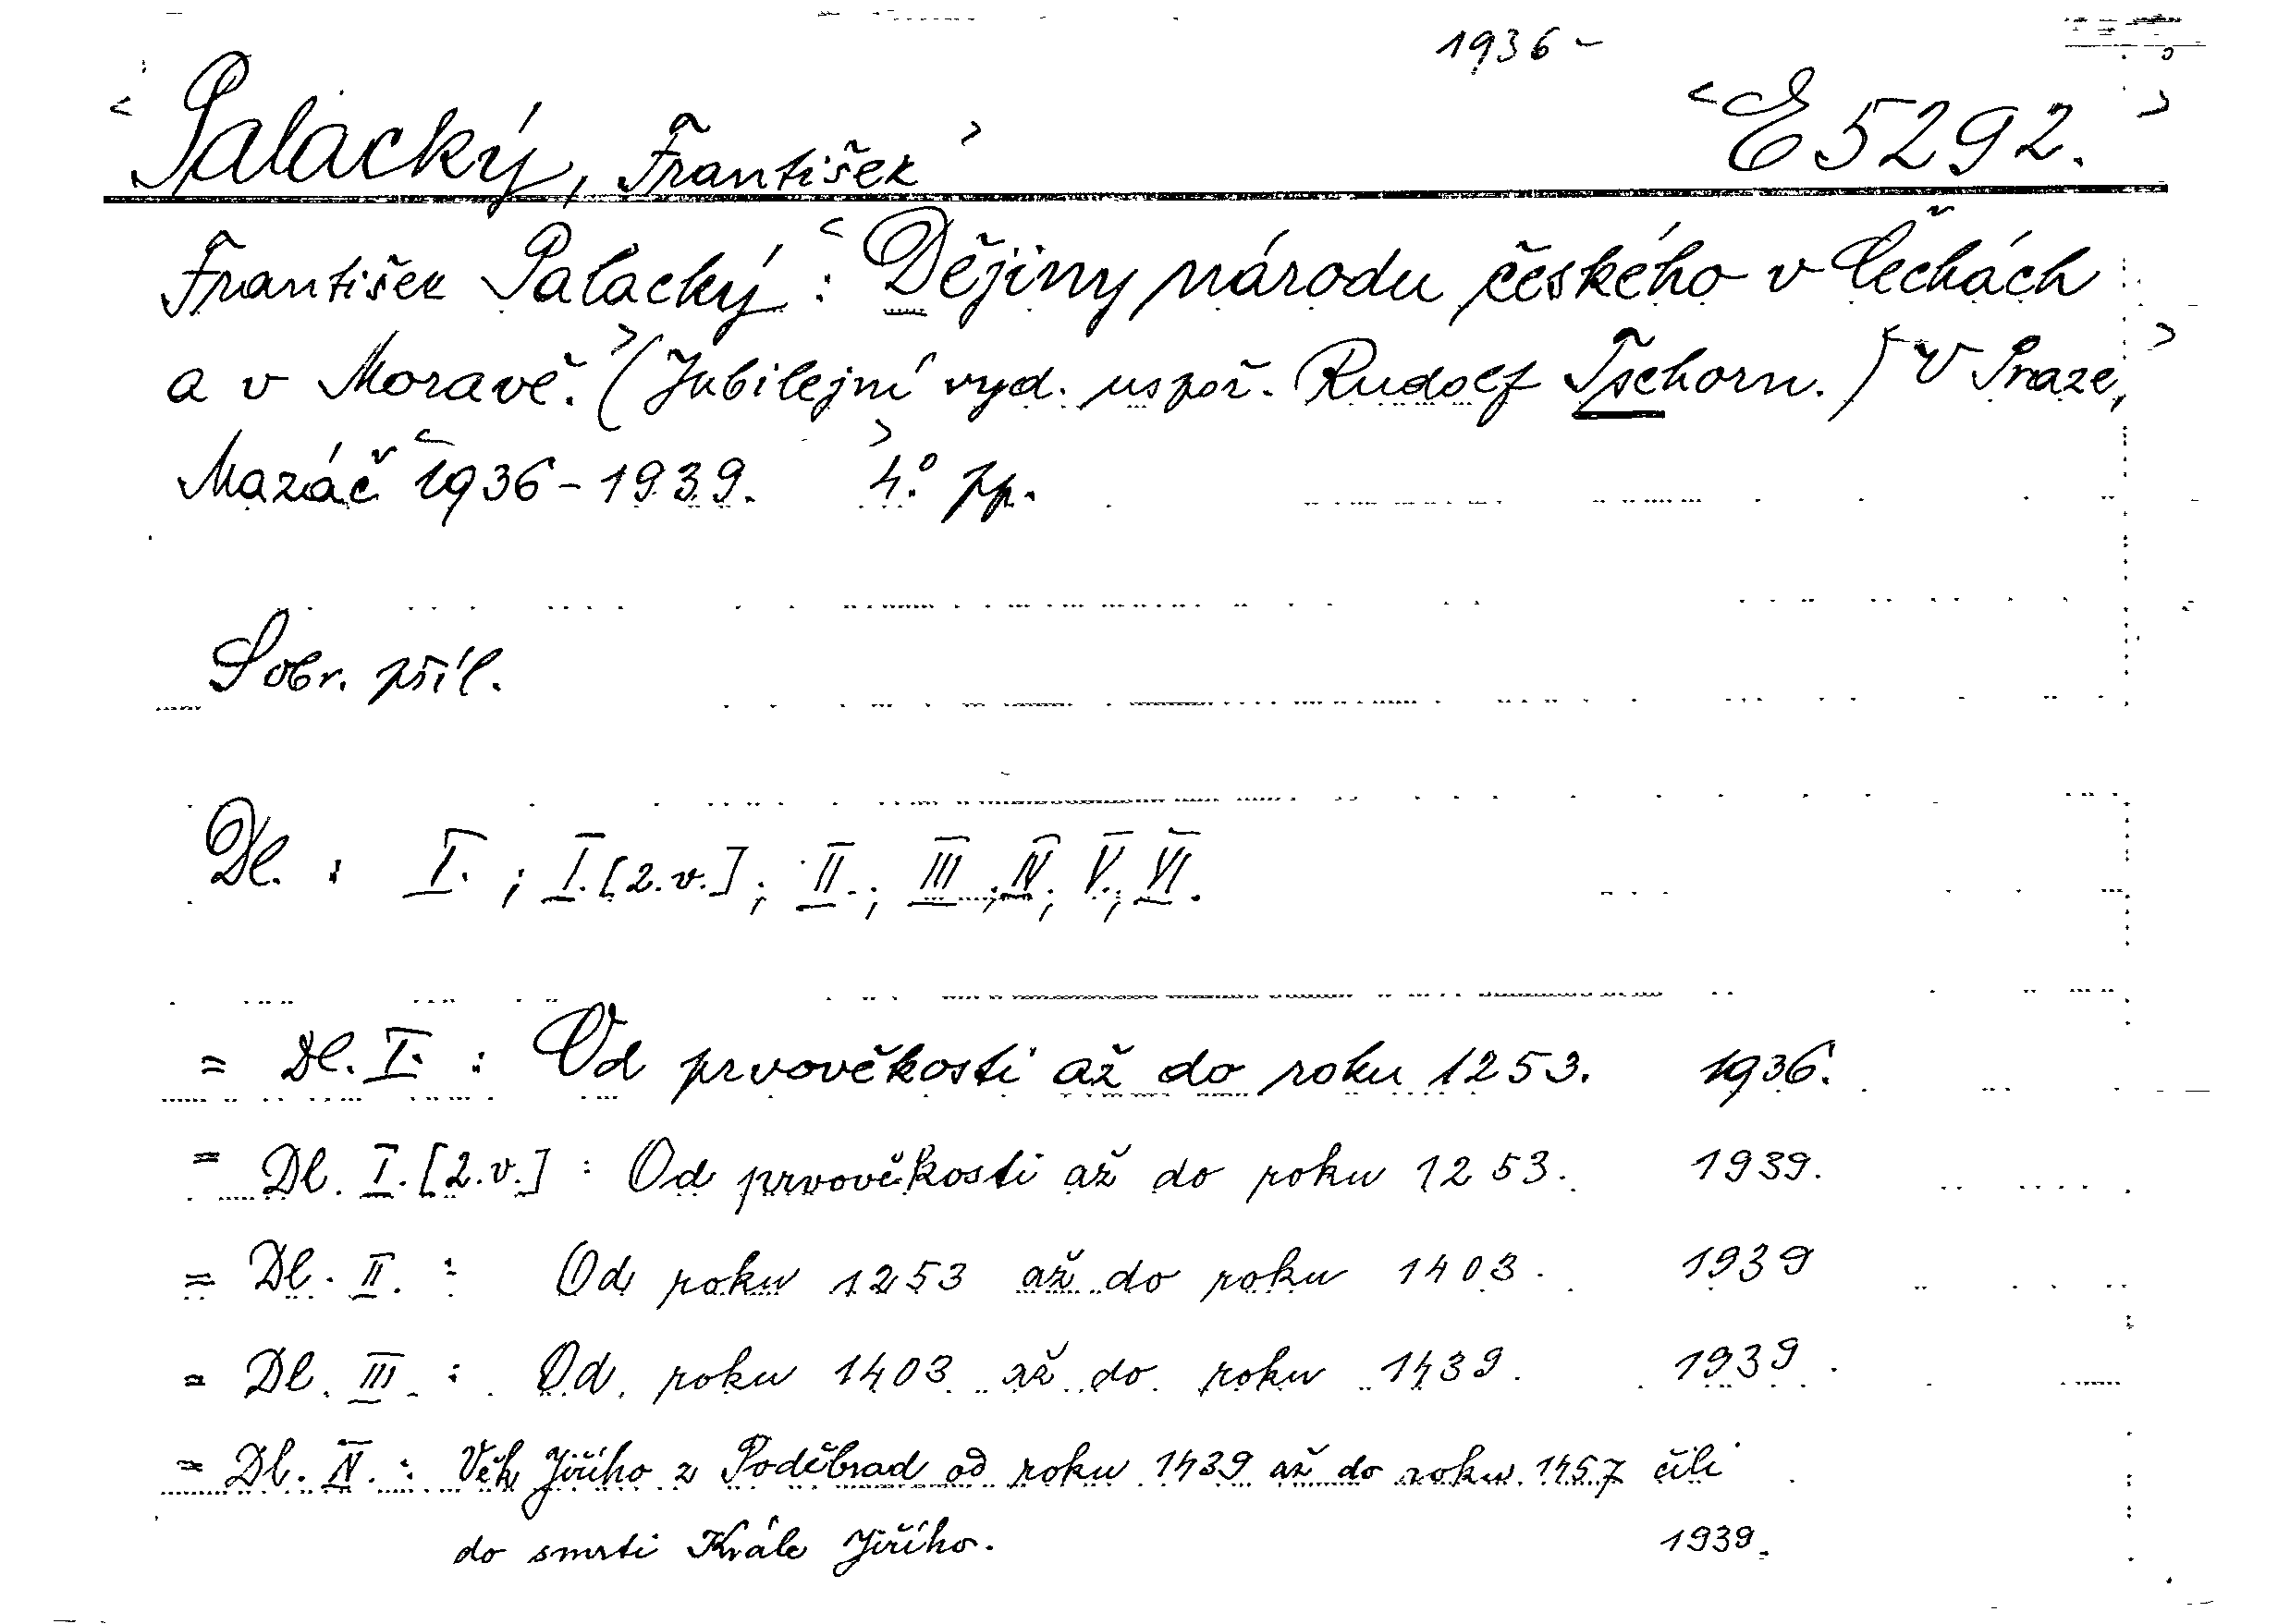 1936 -
< Palacký, František > < E 5292. >
František Palacký : < Dějiny národu českého v Čechách
a v Moravě. > (Jubilejní vyd. uspoř. Rudolf Tschorn.) < V Praze, >
Mazáč < 1936 - 1939. > 4.° pp.
Sobr. příl.
Dl. : I. ; I. [2.v.] ; II. ; III ; IV ; V. ; VI.
= Dl. I. : Od prvověkosti až do roku 1253. 1936.
= Dl. I. [2.v.] : Od prvověkosti až do roku 1253. 1939.
= Dl. II. : Od roku 1253 až do roku 1403. 1939
= Dl. III. : Od roku 1403 až do roku 1439. 1939.
= Dl. IV. : Věk Jiřího z Poděbrad od roku 1439 až do roku 1457 čili
do smrti Krále Jiřího. 1939.